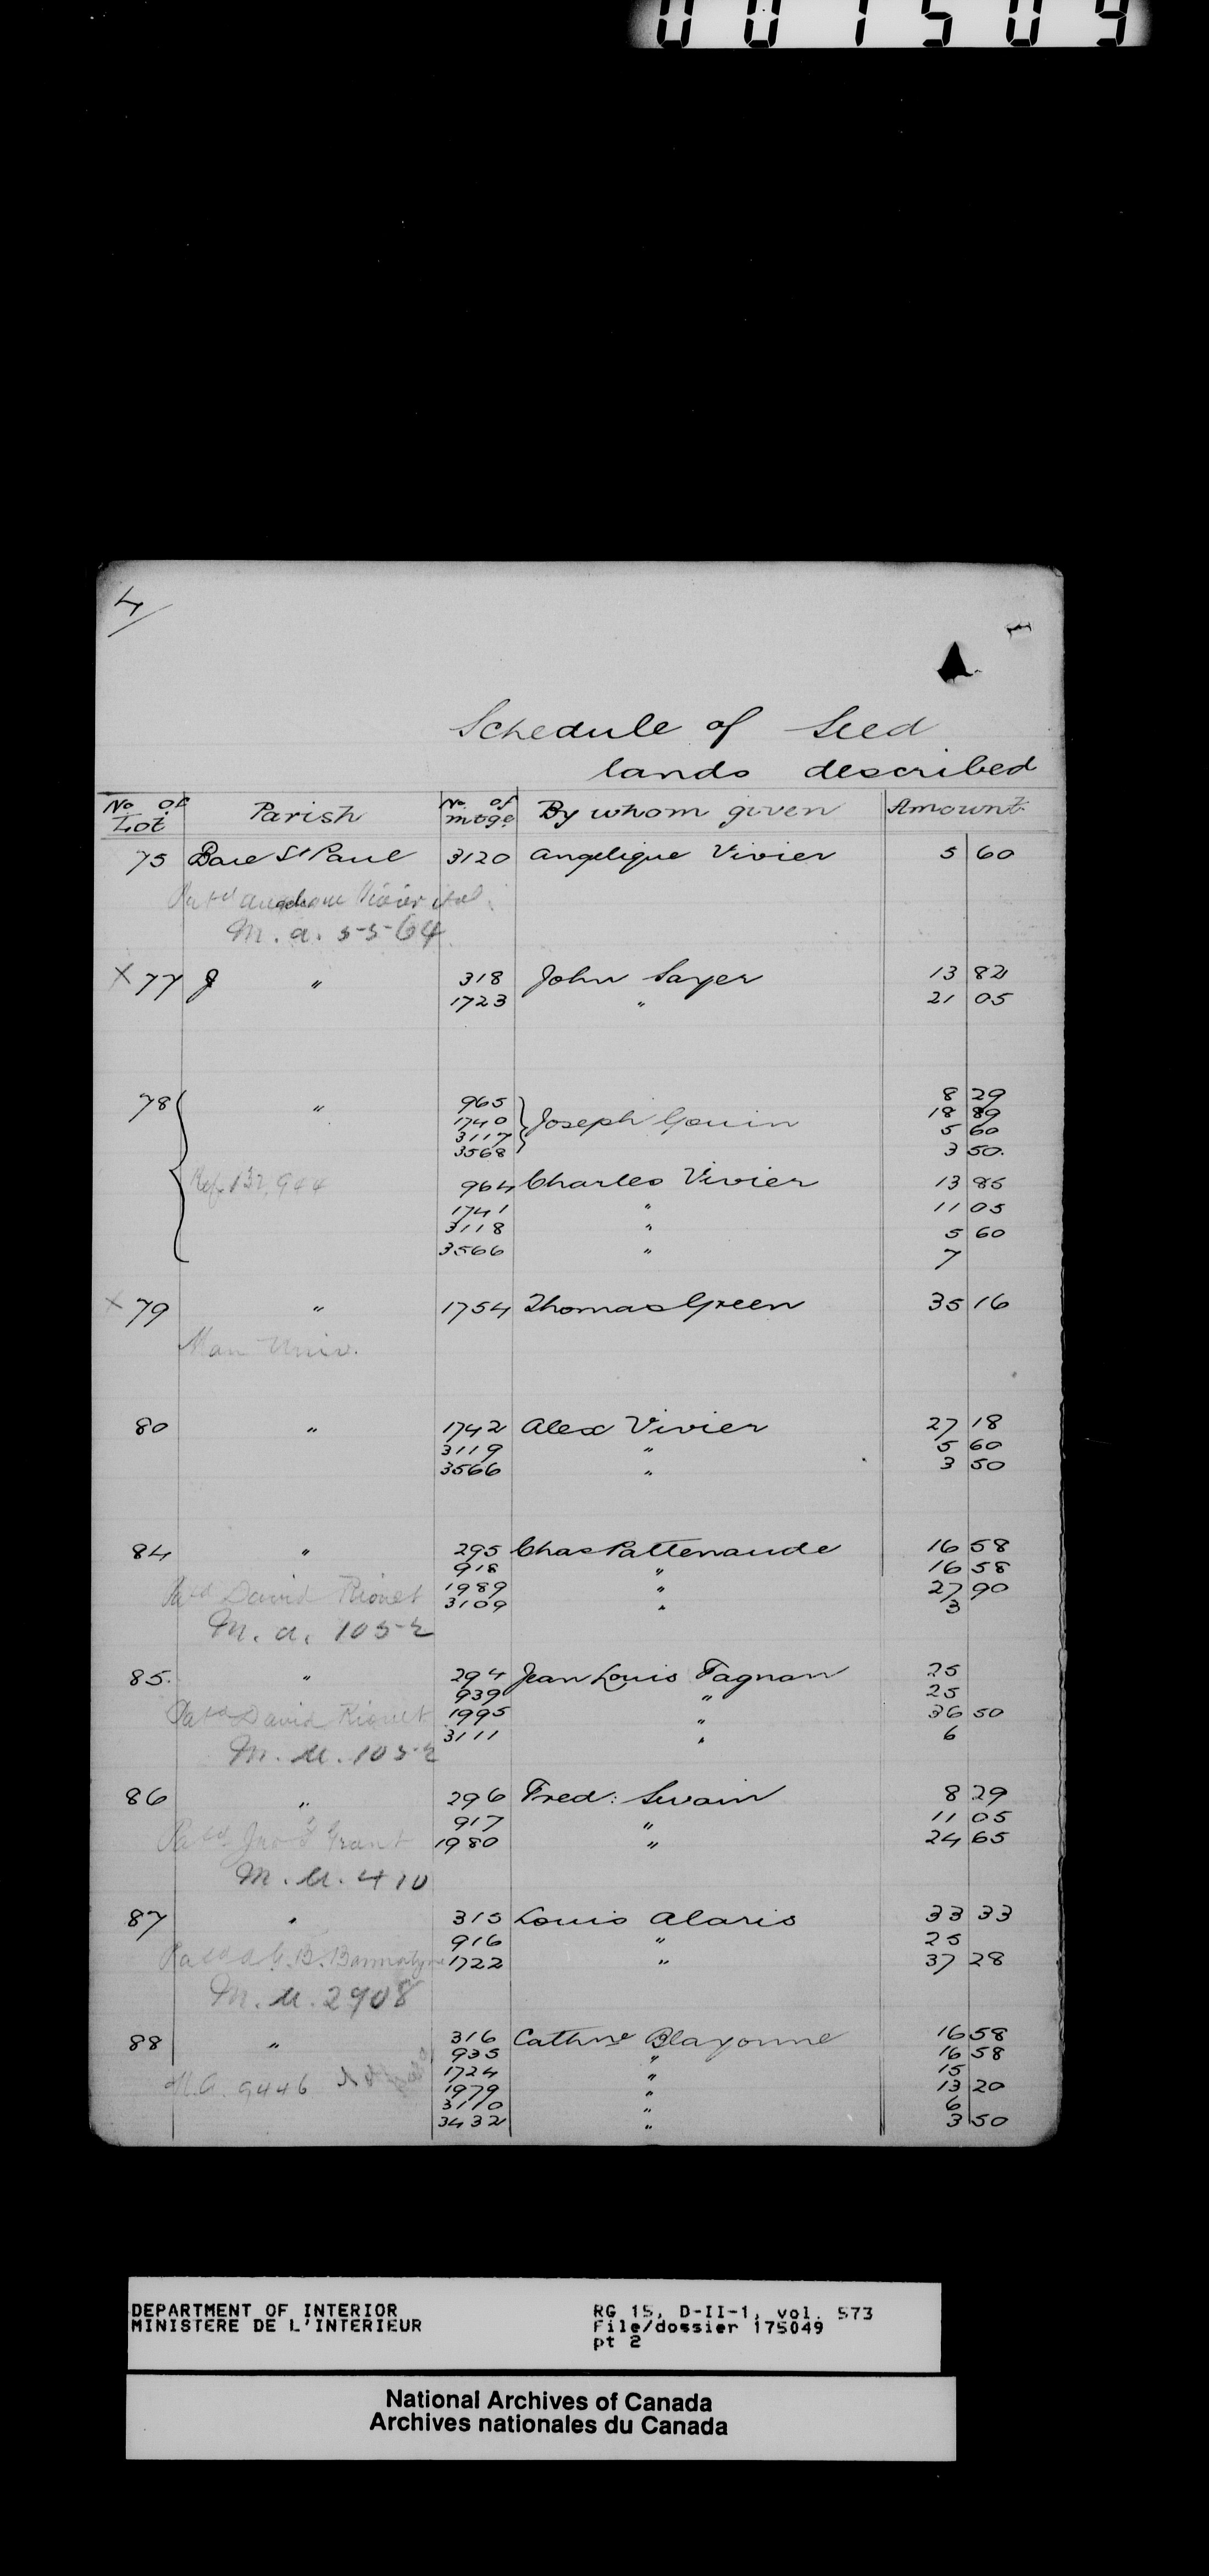 001509
4
Schedule of Seed
lands described
No of Lot Parish No. of mtge. By whom given Amount
75 Baie St Paul 3120 Angelique Vivier 5 60
Patd Angelique Vivier
M. A. 5564
X 77 " 318 John Sayer 13 82
1723 " 21 05
78 " 965 Joseph Gouin 8 29
1740 18 89
3117 5 60
3568 3 50.
Ref. 132,944 964 Charles Vivier 13 85
1741 " 11 05
3118 " 5 60
3566 " 7
X 79 " 1754 Thomas Green 35 16
Man Univ.
80 " 1742 Alex Vivier 27 18
3119 " 5 60
3566 " 3 50
84 " 295 Chas Pattenaude 16 58
918 " 16 58
Patd David 1989 " 27 90
3109 " 3
M. A. 1052
85. " 294 Jean Louis Tagnan 25
939 " 25
Patd David 1995 " 36 50
3111 " 6
M. A. 1052
86 " 296 Fred: Swain 8 29
917 " 11 05
Patd Jno Grant 1980 " 24 65
M. A. 410
87 " 315 Louis Alaris 33 33
916 " 25
Patd A. G. B. Bannatyne 1722 " 37 28
M. A. 2908
88 " 316 Cathne Blayonne 16 58
935 " 16 58
M.A. 9446 1724 " 15
1979 " 13 20
3110 " 6
3432 " 3 50
DEPARTMENT OF INTERIOR
MINISTERE DE L'INTERIEUR
RG 15, D-II-1, vol. 573
File/dossier 175049
pt 2
National Archives of Canada
Archives nationales du Canada